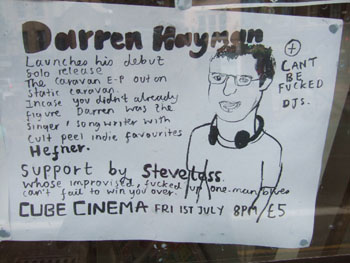 Darren Hayman
Launches his debut
Solo release
The Caravan E-P out on
Static caravan.
Incase you didn't already
figure Darren was the
Singer/songwriter with
Cult peel indie favourites
Hefner.
+
CANT
BE
FUCKED
DJS.
Support by Steveless.
whose improvised, fucked up one-man blues
can't fail to win you over.
CUBE CINEMA FRI 1ST JULY 8PM £5